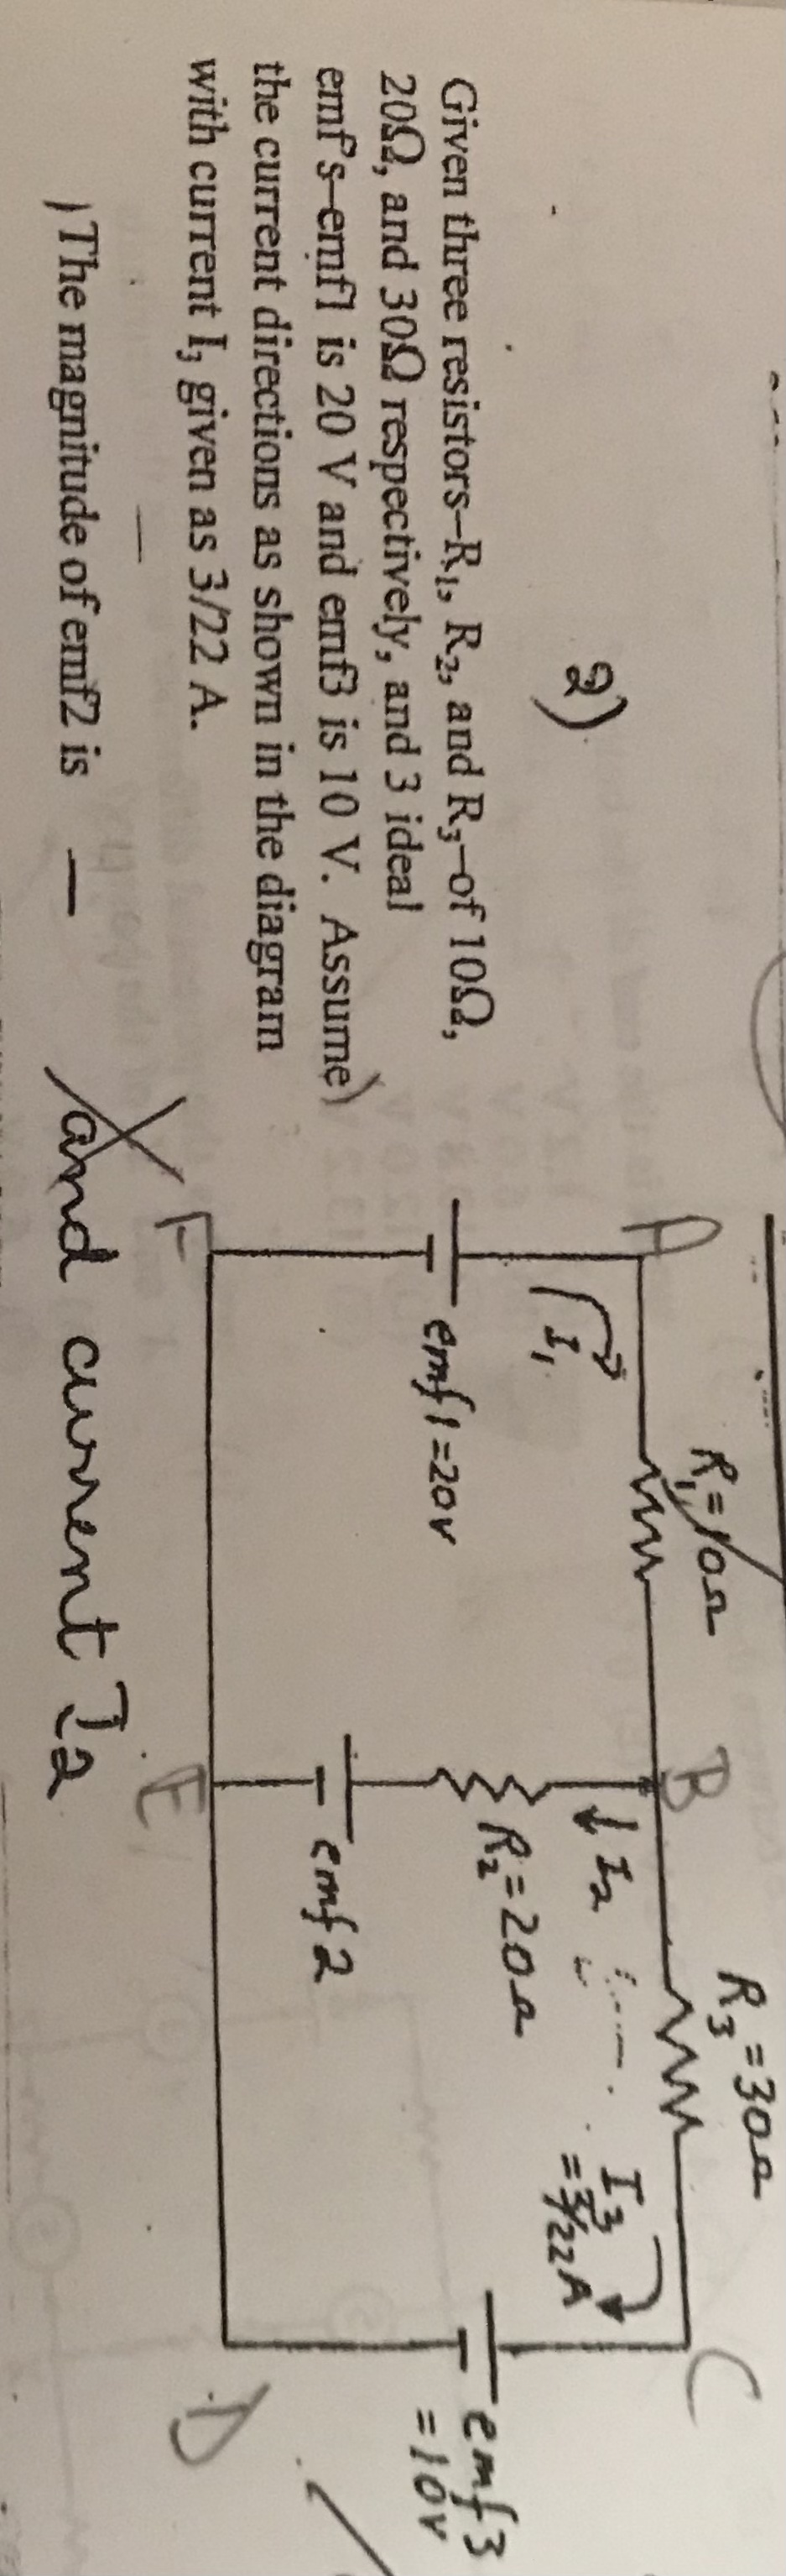 2)
Given three resistors–R₁, R₂, and R₃–of 10Ω,
20Ω, and 30Ω respectively, and 3 ideal
emf's–emf1 is 20 V and emf3 is 10 V. Assume)
the current directions as shown in the diagram
with current I₃ given as 3/22 A.
) The magnitude of emf2 is —
and current I2
A
R₁=10Ω
B
R₃=30Ω
C
I₁
↓ I₂
I₃
=3/22A
emf1=20v
R₂=20Ω
emf3
=10v
emf2
F
E
D